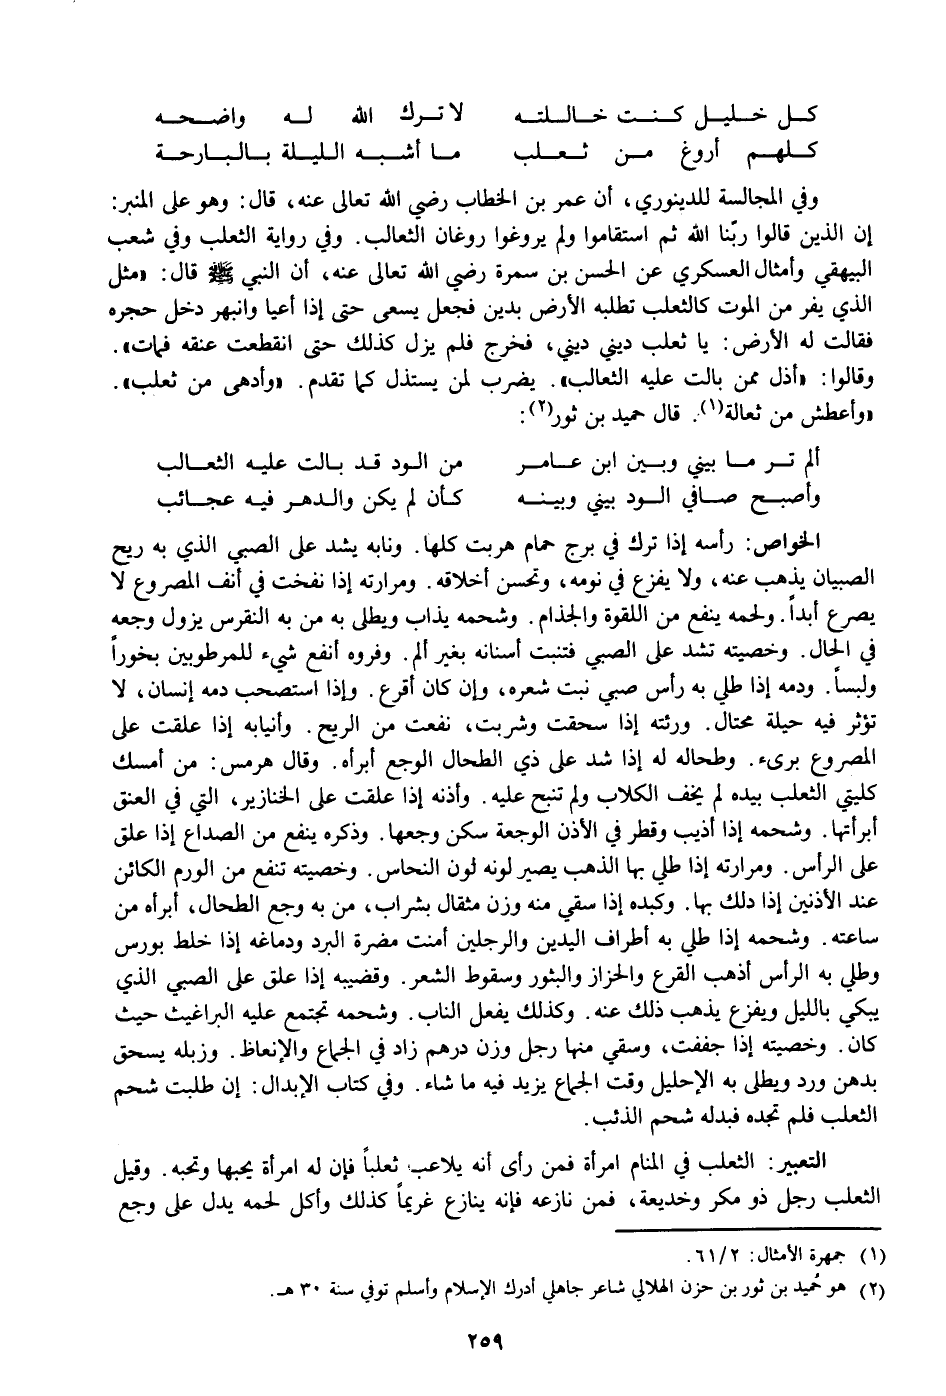 كل خليل كنت خاللته لا ترك الله له واضحه
كلهم أروغ من ثعلب ما أشبه الليلة بالبارحة
وفي المجالسة للدينوري، أن عمر بن الخطاب رضي الله تعالى عنه، قال: وهو على المنبر:
إن الذين قالوا ربّنا الله ثم استقاموا ولم يروغوا روغان الثعالب. وفي رواية الثعلب وفي شعب
البيهقي وأمثال العسكري عن الحسن بن سمرة رضي الله تعالى عنه، أن النبي ﷺ قال: «مثل
الذي يفر من الموت كالثعلب تطلبه الأرض بدين فجعل يسعى حتى إذا أعيا وانبهر دخل حجره
فقالت له الأرض: يا ثعلب ديني ديني، فخرج فلم يزل كذلك حتى انقطعت عنقه فمات».
وقالوا: «أذل ممن بالت عليه الثعالب». يضرب لمن يستذل كما تقدم. «وأدهى من ثعلب».
«وأعطش من ثعالة(١). قال حميد بن ثور(٢):
ألم تر ما بيني وبين ابن عامر من الود قد بالت عليه الثعالب
وأصبح صافي الود بيني وبينه كأن لم يكن والدهر فيه عجائب
الخواص: رأسه إذا ترك في برج حمام هربت كلها. ونابه يشد على الصبي الذي به ريح
الصبيان يذهب عنه، ولا يفزع في نومه، وتحسن أخلاقه. ومرارته إذا نفخت في أنف المصروع لا
يصرع أبداً. ولحمه ينفع من اللقوة والجذام. وشحمه يذاب ويطلى به من به النقرس يزول وجعه
في الحال. وخصيته تشد على الصبي فتنبت أسنانه بغير ألم. وفروه أنفع شيء للمرطوبين بخوراً
ولبساً. ودمه إذا طلي به رأس صبي نبت شعره، وإن كان أقرع. وإذا استصحب دمه إنسان، لا
تؤثر فيه حيلة محتال. ورئته إذا سحقت وشربت، نفعت من الريح. وأنيابه إذا علقت على
المصروع برىء. وطحاله له إذا شد على ذي الطحال الوجع أبرأه. وقال هرمس: من أمسك
كليتي الثعلب بيده لم يخف الكلاب ولم تنبح عليه. وأذنه إذا علقت على الخنازير، التي في العنق
أبرأتها. وشحمه إذا أذيب وقطر في الأذن الوجعة سكن وجعها. وذكره ينفع من الصداع إذا علق
على الرأس. ومرارته إذا طلي بها الذهب يصير لونه لون النحاس. وخصيته تنفع من الورم الكائن
عند الأذنين إذا دلك بها. وكبده إذا سقي منه وزن مثقال بشراب، من به وجع الطحال، أبرأه من
ساعته. وشحمه إذا طلي به أطراف اليدين والرجلين أمنت مضرة البرد ودماغه إذا خلط بورس
وطلي به الرأس أذهب القرع والحزاز والبثور وسقوط الشعر. وقضيبه إذا علق على الصبي الذي
يبكي بالليل ويفزع يذهب ذلك عنه. وكذلك يفعل الناب. وشحمه تجتمع عليه البراغيث حيث
كان. وخصيته إذا جففت، وسقي منها رجل وزن درهم زاد في الجماع والإنعاظ. وزبله يسحق
بدهن ورد ويطلى به الإحليل وقت الجماع يزيد فيه ما شاء. وفي كتاب الإبدال: إن طلبت شحم
الثعلب فلم تجده فبدله شحم الذئب.
التعبير: الثعلب في المنام امرأة فمن رأى أنه يلاعب ثعلباً فإن له امرأة يحبها وتحبه. وقيل
الثعلب رجل ذو مكر وخديعة، فمن نازعه فإنه ينازع غريماً كذلك وأكل لحمه يدل على وجع
(١) جمهرة الأمثال: ٦١/٢.
(٢) هو حُميد بن ثور بن حزن الهلالي شاعر جاهلي أدرك الإسلام وأسلم توفي سنة ٣٠ هـ.
٢٥٩